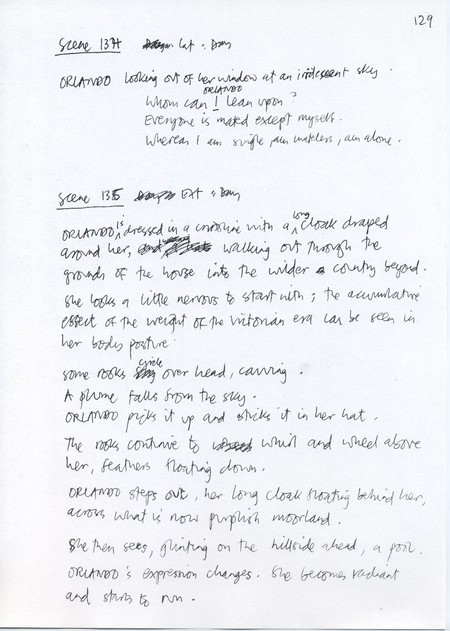 129
Scene 134 Int. Day
ORLANDO looking out of her window at an iridescent sky.
ORLANDO
Whom can I lean upon?
Everyone is mated except myself.
Whereas I am single, am mateless, am alone.
Scene 135 EXT. Day
ORLANDO is dressed in a crinoline with a long cloak draped
around her, walking out through the
grounds of the house into the wider country beyond.
She looks a little nervous to start with; the accumulative
effect of the weight of the Victorian era can be seen in
her body posture.
Some rooks circle over head, cawing.
A plume falls from the sky.
ORLANDO picks it up and sticks it in her hat.
The rooks continue to whirl and wheel above
her, feathers floating down.
ORLANDO steps out, her long cloak floating behind her,
across what is now purplish moorland.
She then sees, glinting on the hillside ahead, a pool.
ORLANDO's expression changes. She becomes radiant
and starts to run.